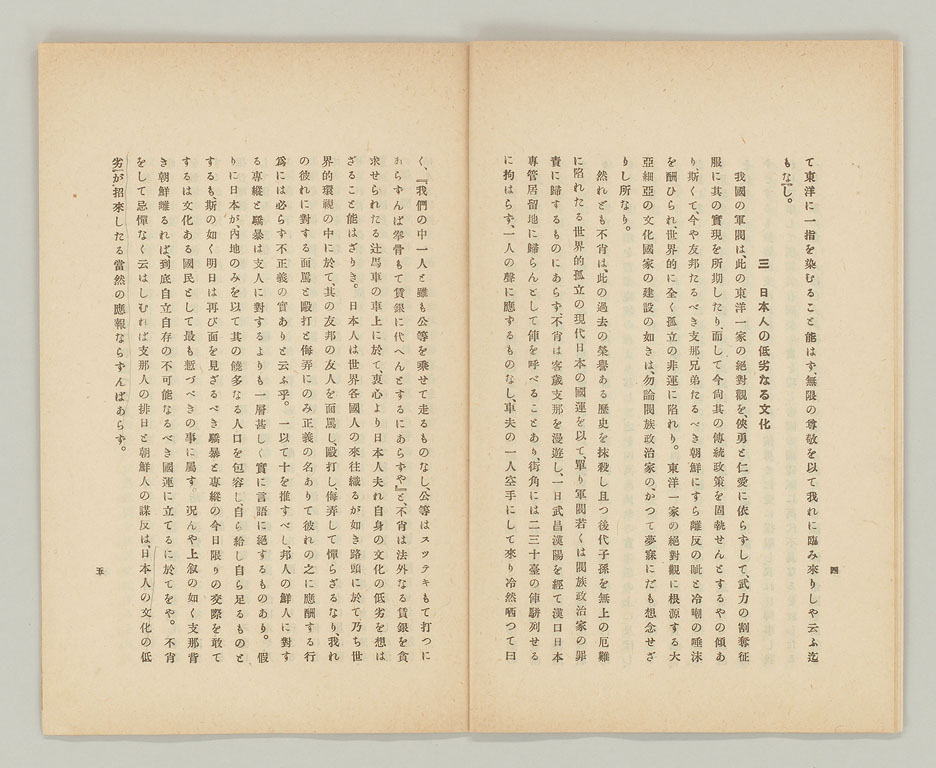 て東洋に一指を染むること能はず、無限の尊敬を以て我れに臨み來りしや云ふ迄
もなし。
三　日本人の低劣なる文化
我國の軍閥は、此の東洋一家の絕對觀を、俠勇と仁愛に依らずして、武力の割奪征
服に其の實現を所期したり、而して今尙其の傳統政策を固執せんとするやの傾あ
り斯くて、今や友邦たるべき支那兄弟たるべき朝鮮にすら離反の耻と冷嘲の唾沫
を酬ひられ、世界的に全く孤立の非運に陷れり。東洋一家の絕對觀に根源する大
亞細亞の文化國家の建設の如きは、勿論閥族政治家の、かつて夢寐にだも想念せざ
りし所なり。
然れども不肖は、此の過去の榮譽ある歷史を抹殺し且つ後代子孫を無上の厄難
に陷れたる世界的孤立の現代日本の國運を以て、單り軍閥若くは閥族政治家の罪
責に歸するものにあらず、不肖は客歲支那を漫遊し、一日武昌漢陽を經て漢口日本
專管居留地に歸らんとして俥を呼べることあり、街角には二三十臺の俥駢列せる
に拘はらず、一人の聲に應ずるものなし、車夫の一人空手にして來り冷然哂つて曰
四
く、『我們の中一人と雖も公等を乘せて走るものなし、公等はステツキもて打つに
あらずんば拳骨もて賃銀に代へんとするにあらずや』と、不肖は法外なる賃銀を貪
求せられたる辻馬車の車上に於て、衷心より日本人夫れ自身の文化の低劣を想は
ざること能はざりき。日本人は世界各國人の來往織るが如き路頭に於て乃ち世
界的環視の中に於て、其の友邦の友人を面罵し、毆打し、侮弄して憚らざるなり、我れ
の彼れに對する面罵と毆打と侮弄にのみ正義の名ありて彼れの之に應酬する行
爲には必らず不正義の實ありと云ふ乎。一以て十を推すべし、邦人の鮮人に對す
る專縱と驕暴は支人に對するよりも一層甚しく實に言語に絕するものあり。假
りに日本が、內地のみを以て其の饒多なる人口を包容し、自ら給し自ら足るものと
するも、斯の如く明日は再び面を見ざるべき驕暴と專縱の今日限りの交際を敢て
するは文化ある國民として最も慙づべきの事に屬す。況んや上叙の如く支那背
き朝鮮離るれば、到底自立自存の不可能なるべき國運に立てるに於てをや。不肖
をして忌憚なく云はしむれば支那人の排日と朝鮮人の謀反は、日本人の文化の低
劣が、招來したる當然の應報ならずんばあらず。
五